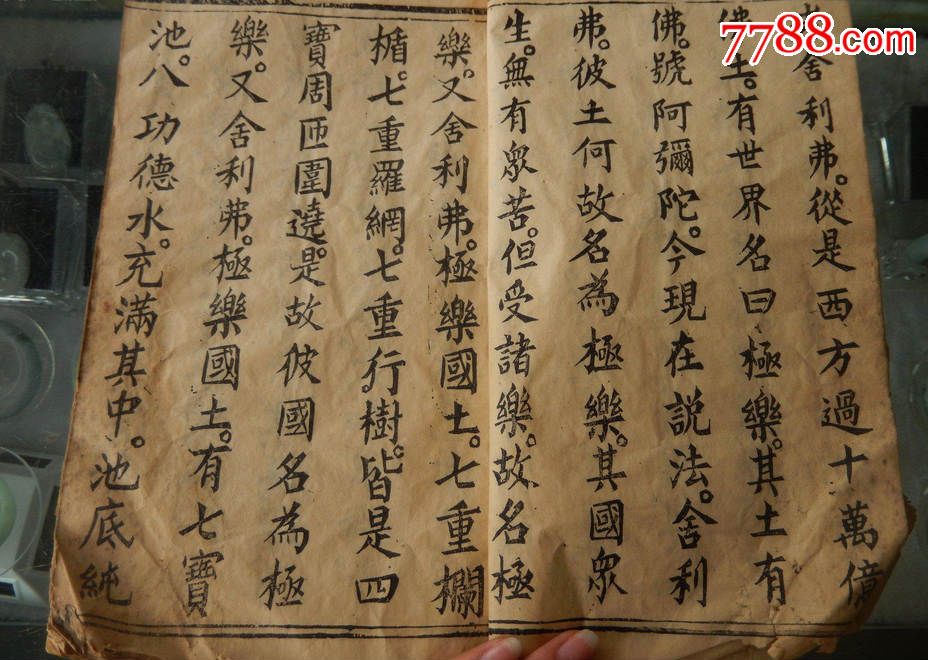 舍利弗。從是西方過十萬億
佛土。有世界名曰極樂。其土有
佛。號阿彌陀。今現在説法。舍利
弗。彼土何故名為極樂。其國眾
生。無有眾苦。但受諸樂。故名極
樂。又舍利弗。極樂國土。七重欄
楯。七重羅網。七重行樹。皆是四
寶周匝圍遶。是故彼國名為極
樂。又舍利弗。極樂國土。有七寶
池。八功德水。充滿其中。池底純
7788.com